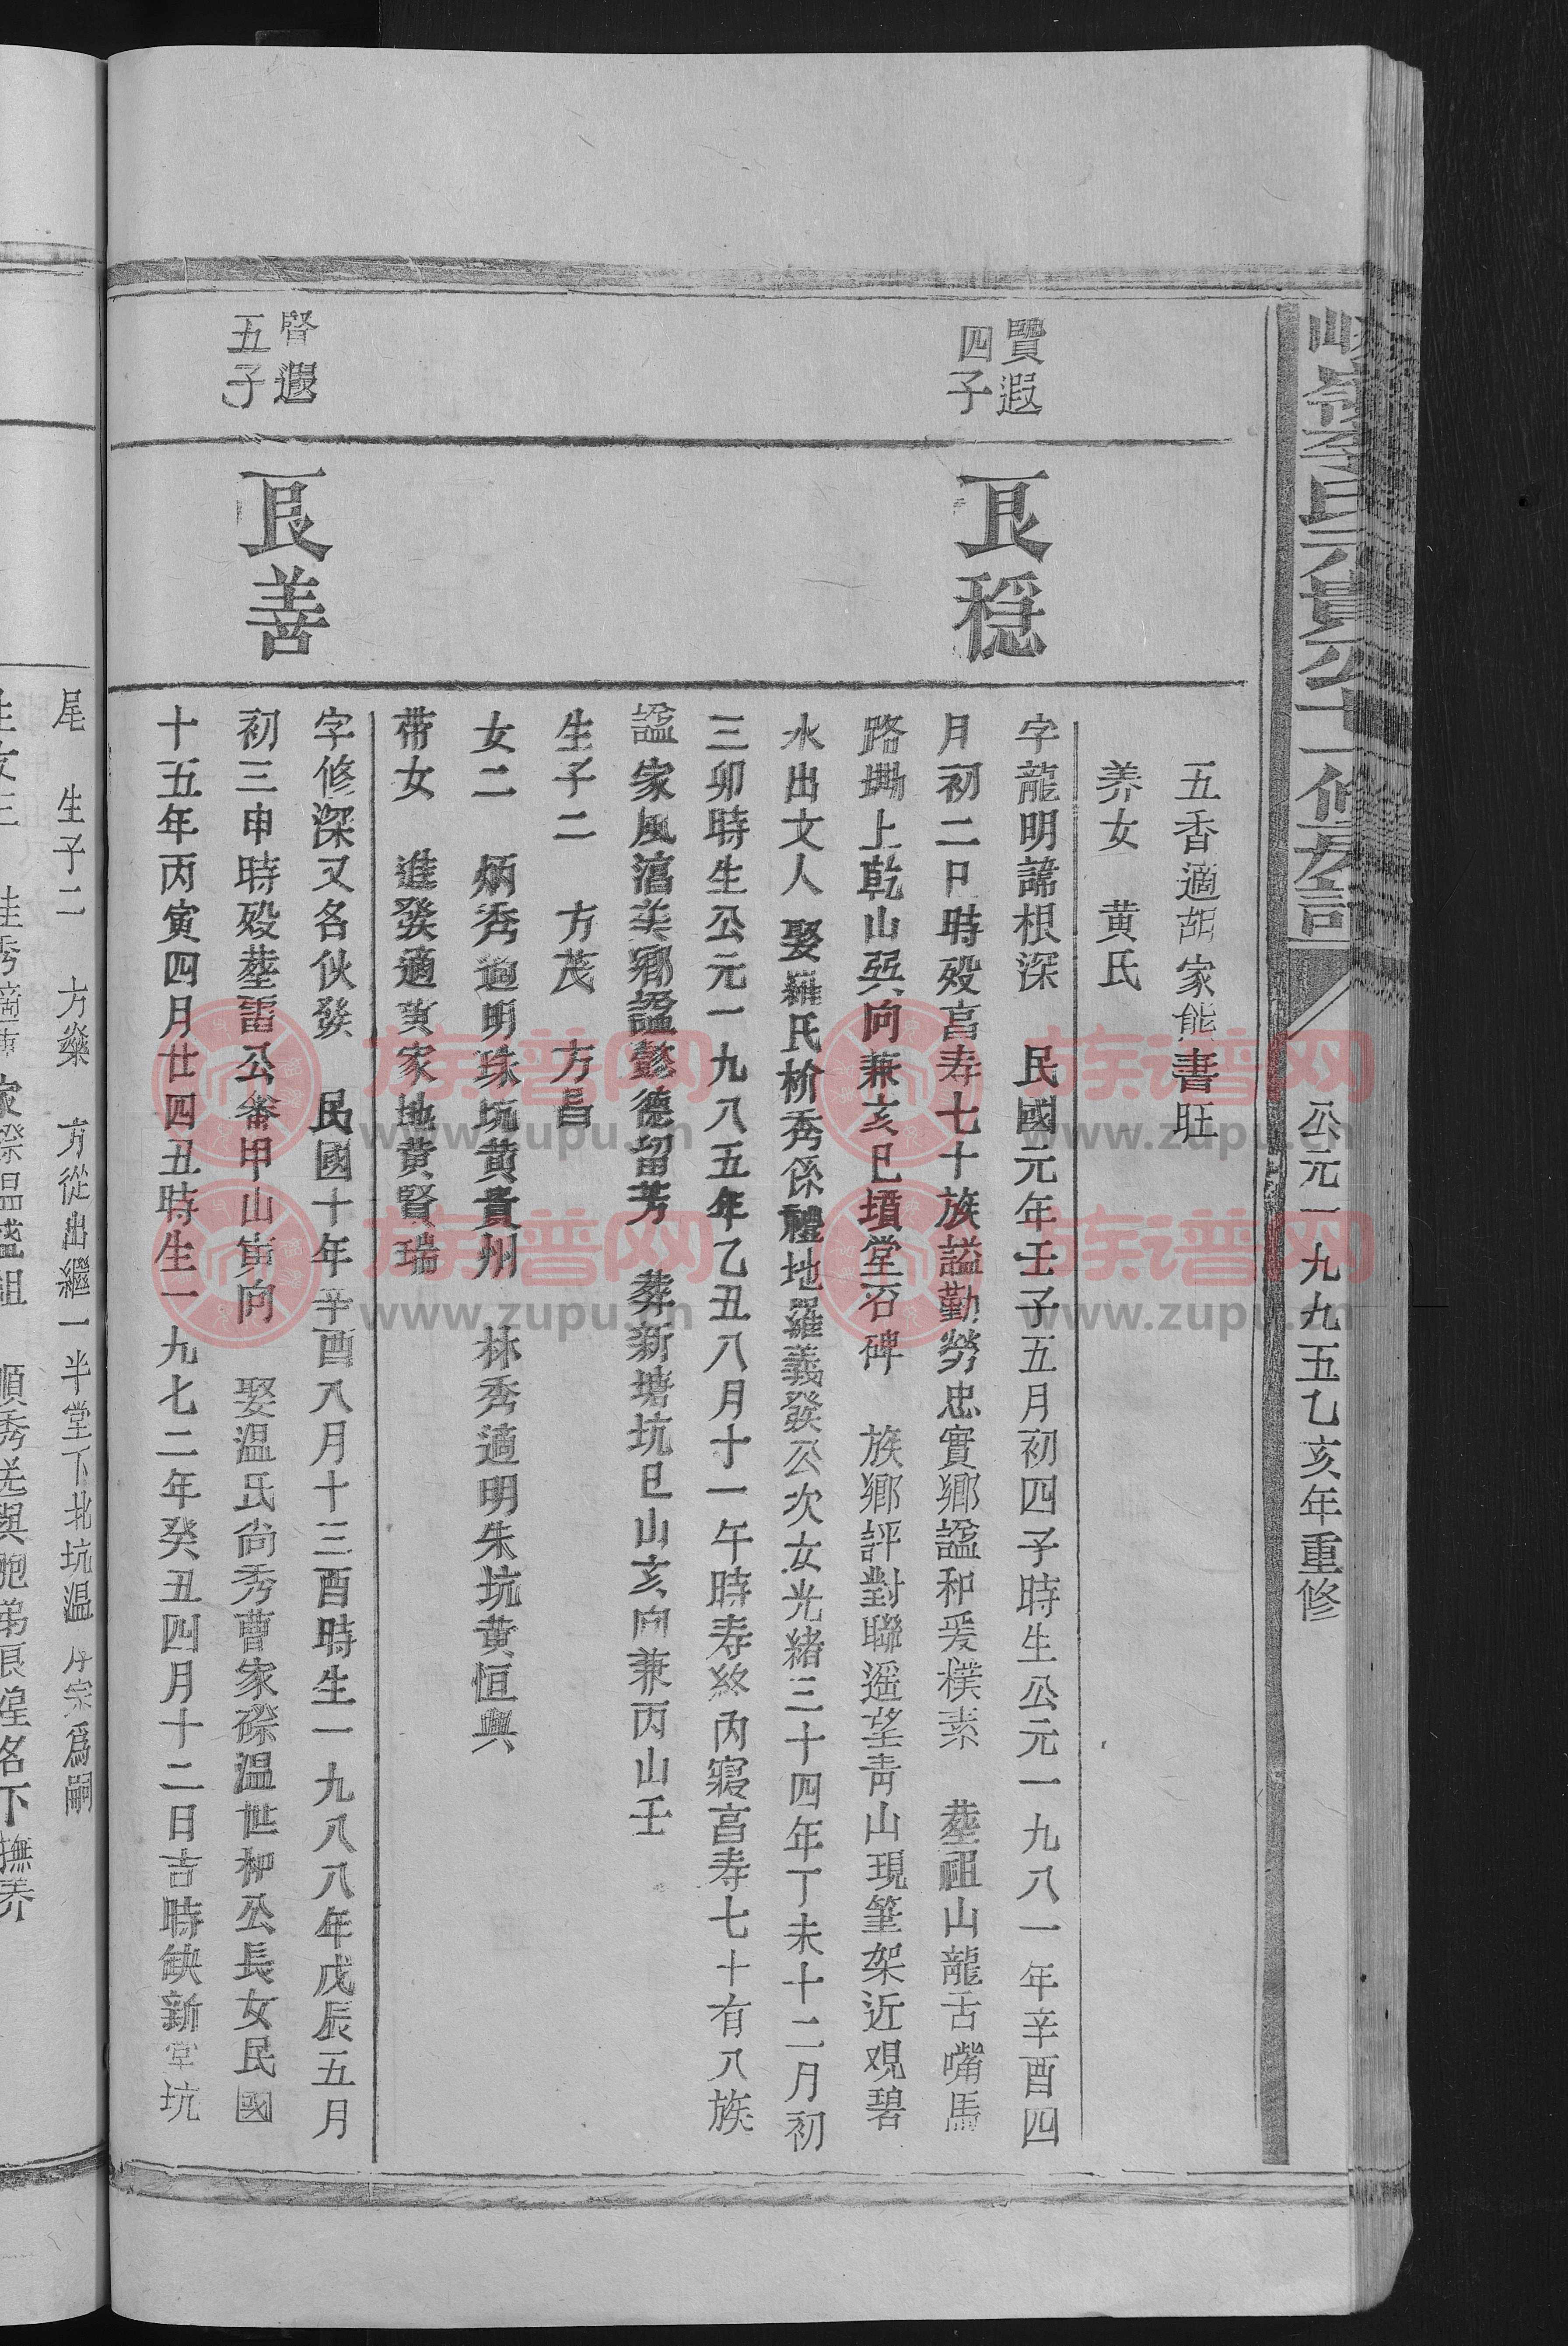 公元一九九五乙亥年重修
五香適胡家能書旺
养女 黄氏
賢遐
四子
良穩
字龍明諱根深 民國元年壬子五月初四子時生公元一九八一年辛酉四
月初二日時殁富寿七十族謚勤勞忠實鄉謚和爰樸素 塟祖山龍舌嘴馬
路墈上乾山巽向兼亥巳墳堂石碑 族鄉評對聯遥望青山現筆架近观碧
水出文人 娶羅氏枌秀係禮地羅義發公次女光緒三十四年丁未十二月初
三卯時生公元一九八五年乙丑八月十一午時寿終內寢富寿七十有八族
謚家風淑美鄉謚懿德留芳 葬新塘坑巳山亥向兼丙山壬
生子二 方茂 方昌
女二 炳秀適明珠坑黄貴州 林秀適明朱坑黄恒興
带女 進發適黄家地黄賢瑞
賢遐
五子
良善
字修深又名伙發 民國十年辛酉八月十三酉時生一九八八年戊辰五月
初三申時殁塟雷公崙甲山寅向 娶温氏尚秀曹家磜温世柳公長女民國
十五年丙寅四月廿四丑時生一九七二年癸丑四月十二日吉時缺新堂坑
尾 生子二 方燊 方從出繼一半堂下北坑温序宗爲嗣
順秀光與胞弟良煌名下撫养